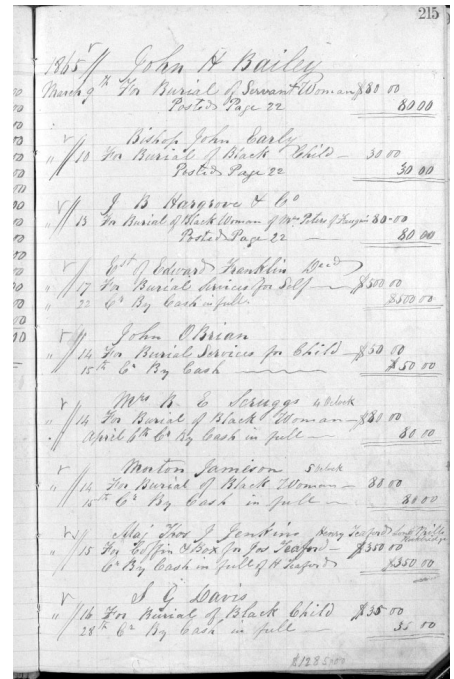 215
1865 John H Bailey
March 9th For Burial of Servant Woman $80 00
Posted Page 22 80 00
Bishop John Early
" 10 For Burial of Black Child 30 00
Posted Page 22 30 00
J B Hargrove & Co
" 13 For Burial of Black Woman of Peters of 80-00
Posted Page 22 80 00
Est of Edward Franklin Decd
" 17 For Burial Services for Self $500 00
" 22 Cr By Cash in full $500 00
John O Brian
" 14 For Burial Services for Child $50 00
15th Cr By Cash $50 00
Mrs R E Scruggs 4 Oclock
" 14 For Burial of Black Woman $80 00
" April 6th Cr By Cash in full 80 00
Morton Jamieson 5 Oclock
" 14 For Burial of Black Woman 80 00
15th Cr By Cash in full 80 00
Maj Thos J Jenkins Henry Teaford
" 15 For Coffin & Box for Jos Teaford $350 00
Cr By Cash in full of H Teaford $350 00
S G Davis
" 16 For Burial of Black Child $35 00
28th Cr By Cash in full 35 00
$1285.00